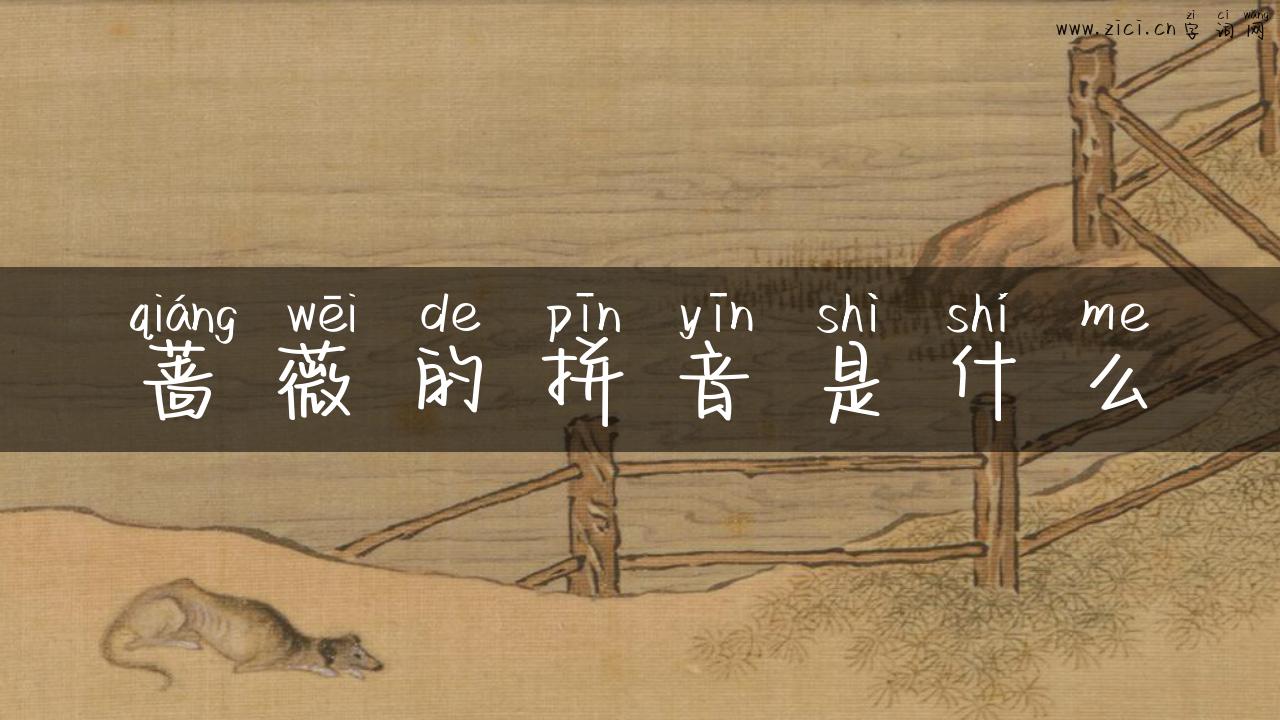 zi ci wang
www.zici.cn 字词网
qiáng wēi de pīn yīn shì shí me
蔷薇的拼音是什么